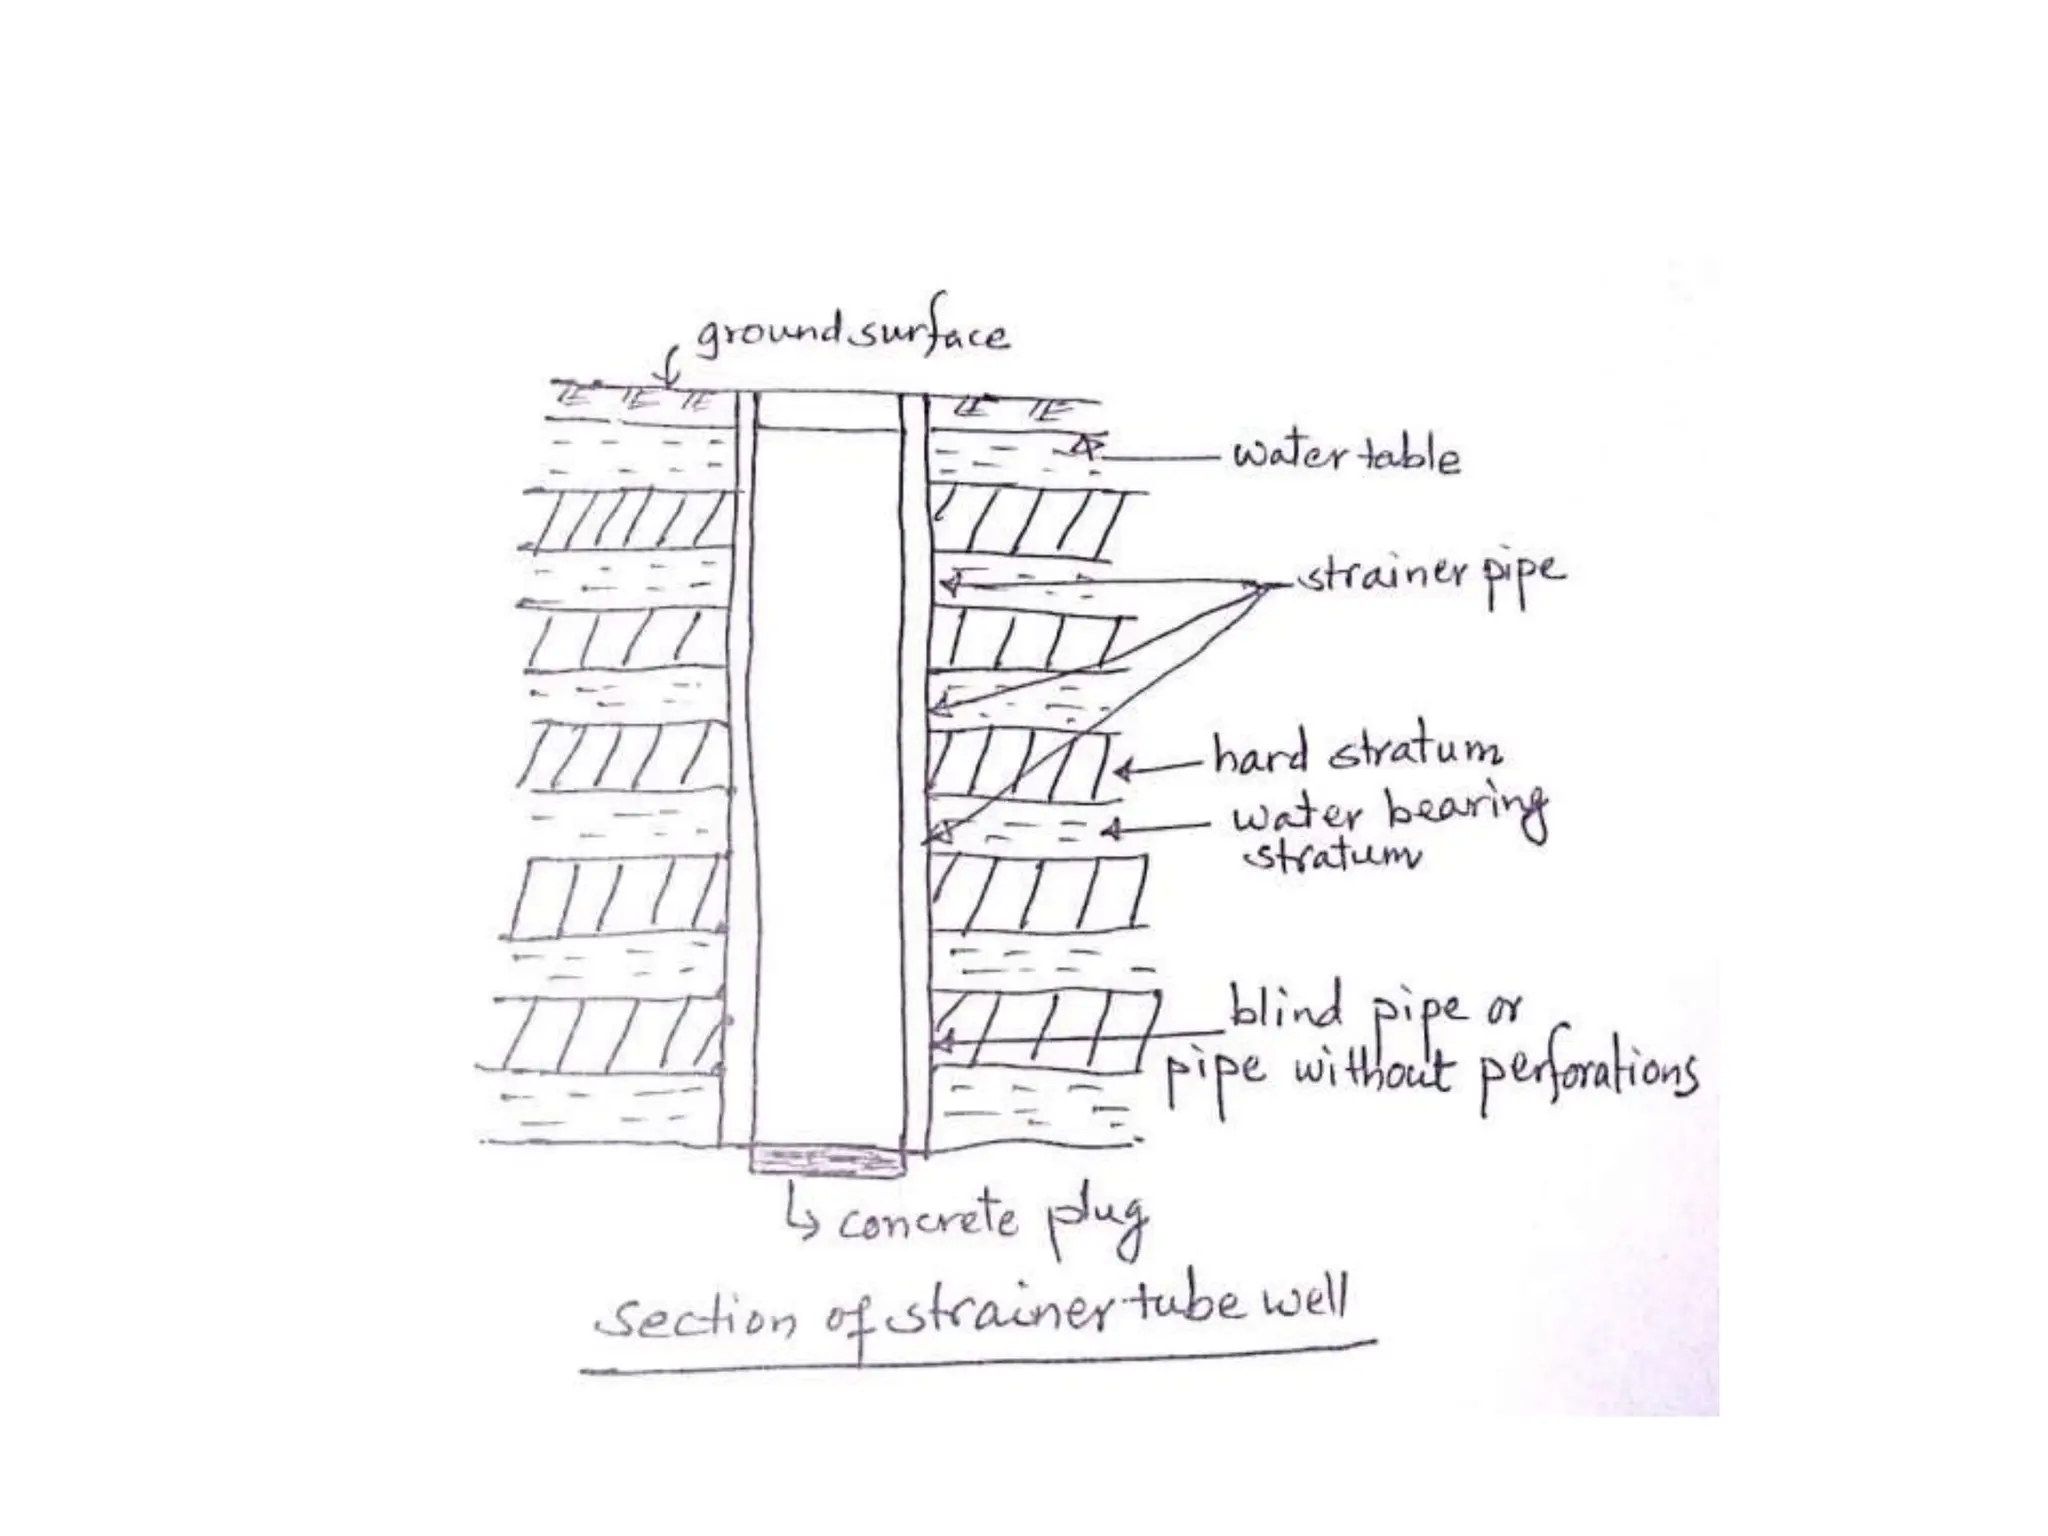 ground surface
water table
strainer pipe
hard stratum
water bearing
stratum
blind pipe or
pipe without perforations
concrete plug
section of strainer tube well